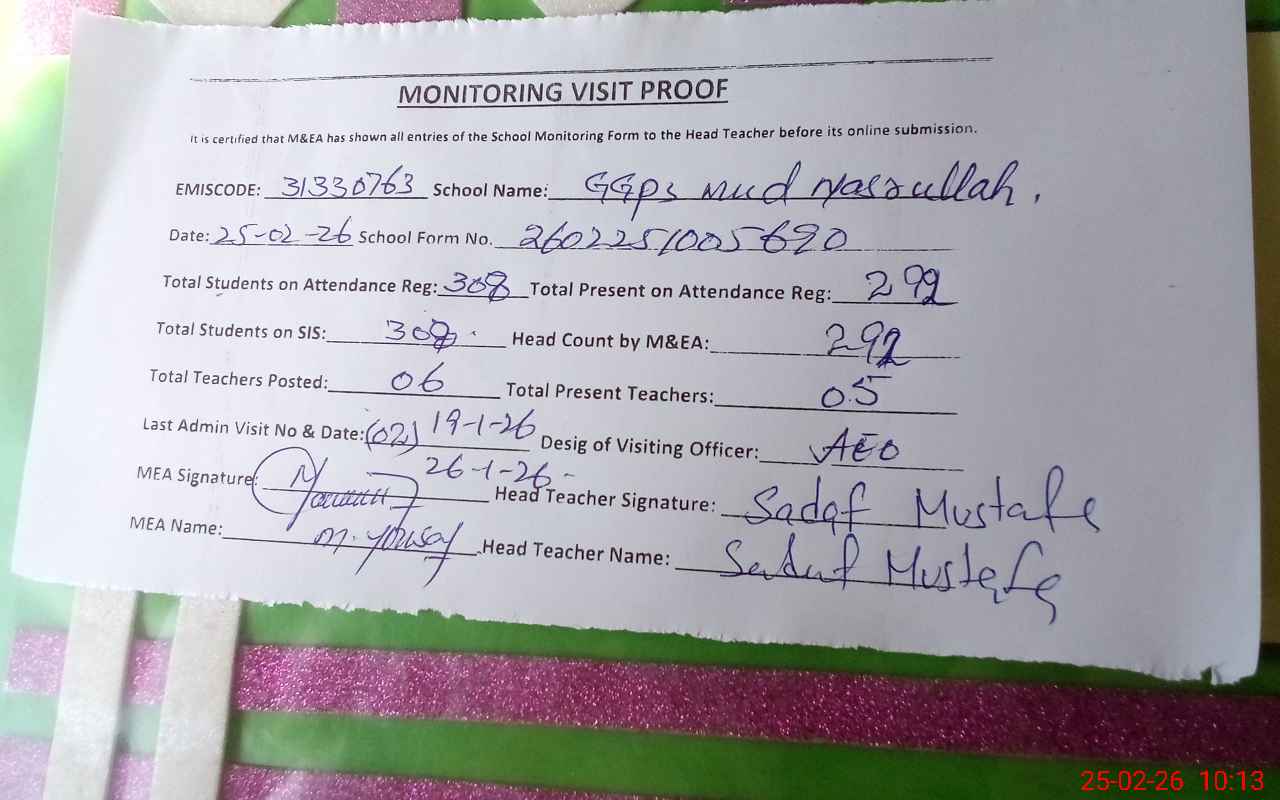 MONITORING VISIT PROOF
It is certified that M&EA has shown all entries of the School Monitoring Form to the Head Teacher before its online submission.
EMISCODE: 31330763 School Name: GGPS Mud Nasrullah.
Date: 25-02-26 School Form No. 2602251005690
Total Students on Attendance Reg: 308 Total Present on Attendance Reg: 292
Total Students on SIS: 308 Head Count by M&EA: 292
Total Teachers Posted: 06 Total Present Teachers: 05
Last Admin Visit No & Date: (02) 19-1-26 Desig of Visiting Officer: AEO
26-1-26
MEA Signature: Head Teacher Signature: Sadaf Mustafa
MEA Name: M. Yousaf Head Teacher Name: Sadaf Mustafa
25-02-26 10:13